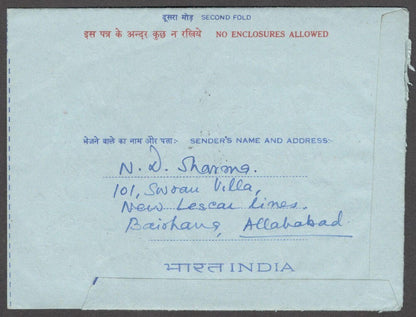 दूसरा मोड़ SECOND FOLD
इस पत्र के अन्दर कुछ न रखिये NO ENCLOSURES ALLOWED
भेजने वाले का नाम और पता:- SENDER'S NAME AND ADDRESS:-
N. D. Sharma.
101, Swoan Villa,
New Lescar Lines.
Bairhana, Allahabad
भारत INDIA